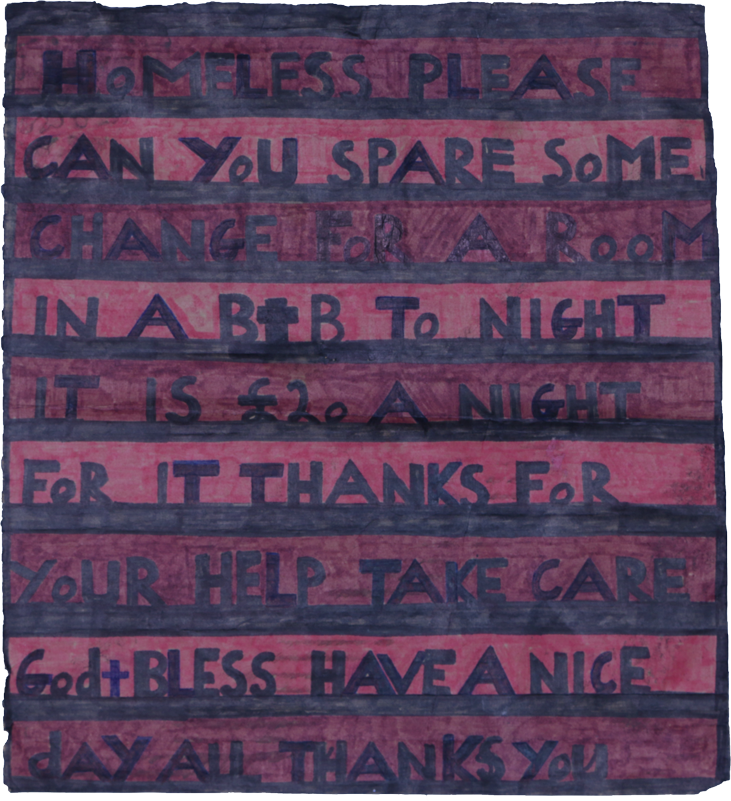 HoMELESS PLEASE
CAN YoU SPARE SoME
CHANGE FoR A RooM
IN A B✝B To NIGHT
IT IS £20 A NIGHT
FoR IT THANKS FoR
YoUR HELP TAKE CARE
God✝BLESS HAVE A NICE
dAY ALL THANKS YoU